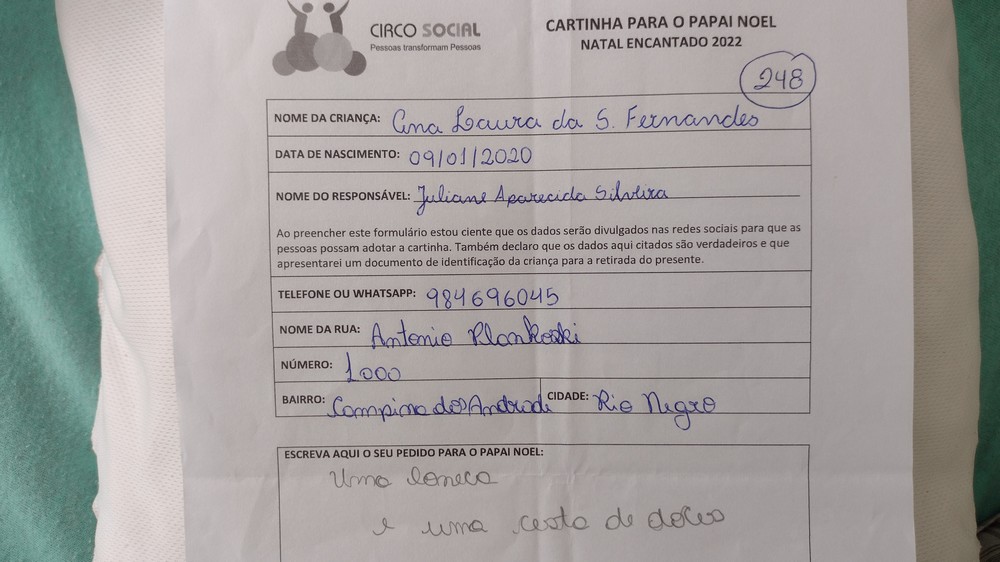 CIRCO SOCIAL
Pessoas transformam Pessoas
CARTINHA PARA O PAPAI NOEL
NATAL ENCANTADO 2022
248
NOME DA CRIANÇA: Ana Laura da S. Fernandes
DATA DE NASCIMENTO: 09/01/2020
NOME DO RESPONSÁVEL: Juliane Aparecida Silveira
Ao preencher este formulário estou ciente que os dados serão divulgados nas redes sociais para que as
pessoas possam adotar a cartinha. Também declaro que os dados aqui citados são verdadeiros e que
apresentarei um documento de identificação da criança para a retirada do presente.
TELEFONE OU WHATSAPP: 984696045
NOME DA RUA: Antonio Plankoski
NÚMERO: 1000
BAIRRO: Campina dos Andrade CIDADE: Rio Negro
ESCREVA AQUI O SEU PEDIDO PARA O PAPAI NOEL:
Uma boneca
e uma cesta de doces